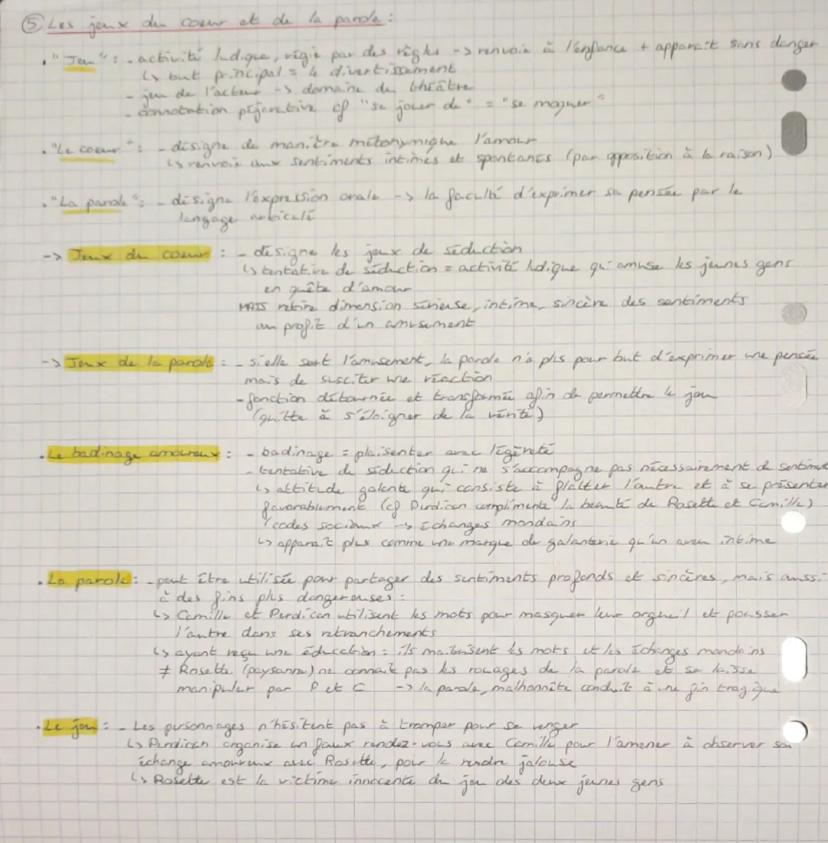 ⑤ Les jeux du coeur et de la parole :
• "Jeu" : - activité ludique, régie par des règles -> renvoie à l'enfance + apparaît sans danger
↳ but principal = le divertissement
- jeu de l'acteur -> domaine du théâtre
- connotation péjorative cf "se jouer de" = "se moquer"
• "Le coeur" : - désigne de manière métonymique l'amour
↳ renvoie aux sentiments intimes et spontanés (par opposition à la raison)
• "La parole" : - désigne l'expression orale -> la faculté d'exprimer sa pensée par le
langage articulé
-> Jeux du coeur : - désigne les jeux de séduction
↳ tentative de séduction = activité ludique qui amuse les jeunes gens
en quête d'amour
MAIS retire dimension sérieuse, intime, sincère des sentiments
au profit d'un amusement
-> Jeux de la parole : - si elle sert l'amusement, la parole n'a plus pour but d'exprimer une pensée
mais de susciter une réaction
- fonction détournée et transformée afin de permettre le jeu
(quitte à s'éloigner de la vérité)
• Le badinage amoureux : - badinage = plaisenter avec légèreté
- tentative de séduction qui ne s'accompagne pas nécessairement de sentime
↳ attitude galante qui consiste à flatter l'autre et à se présenter
favorablement (cf Perdican complimente la beauté de Rosette et Camille)
codes sociaux -> échanges mondains
↳ apparaît plus comme une marque de galanterie qu'un aveu intime
• La parole : - peut être utilisée pour partager des sentiments profonds et sincères, mais aussi
à des fins plus dangereuses :
↳ Camille et Perdican utilisent les mots pour masquer leur orgueil et pousser
l'autre dans ses retranchements
↳ ayant reçu une éducation : ils maîtrisent les mots et les échanges mondains
≠ Rosette (paysanne) ne connaît pas les rouages de la parole et se laisse
manipuler par P et C -> la parole, malhonnête conduit à une fin tragique
• Le jeu : - Les personnages n'hésitent pas à tromper pour se venger
↳ Perdican organise un faux rendez-vous avec Camille pour l'amener à observer son
échange amoureux avec Rosette, pour la rendre jalouse
↳ Rosette est la victime innocente du jeu des deux jeunes gens